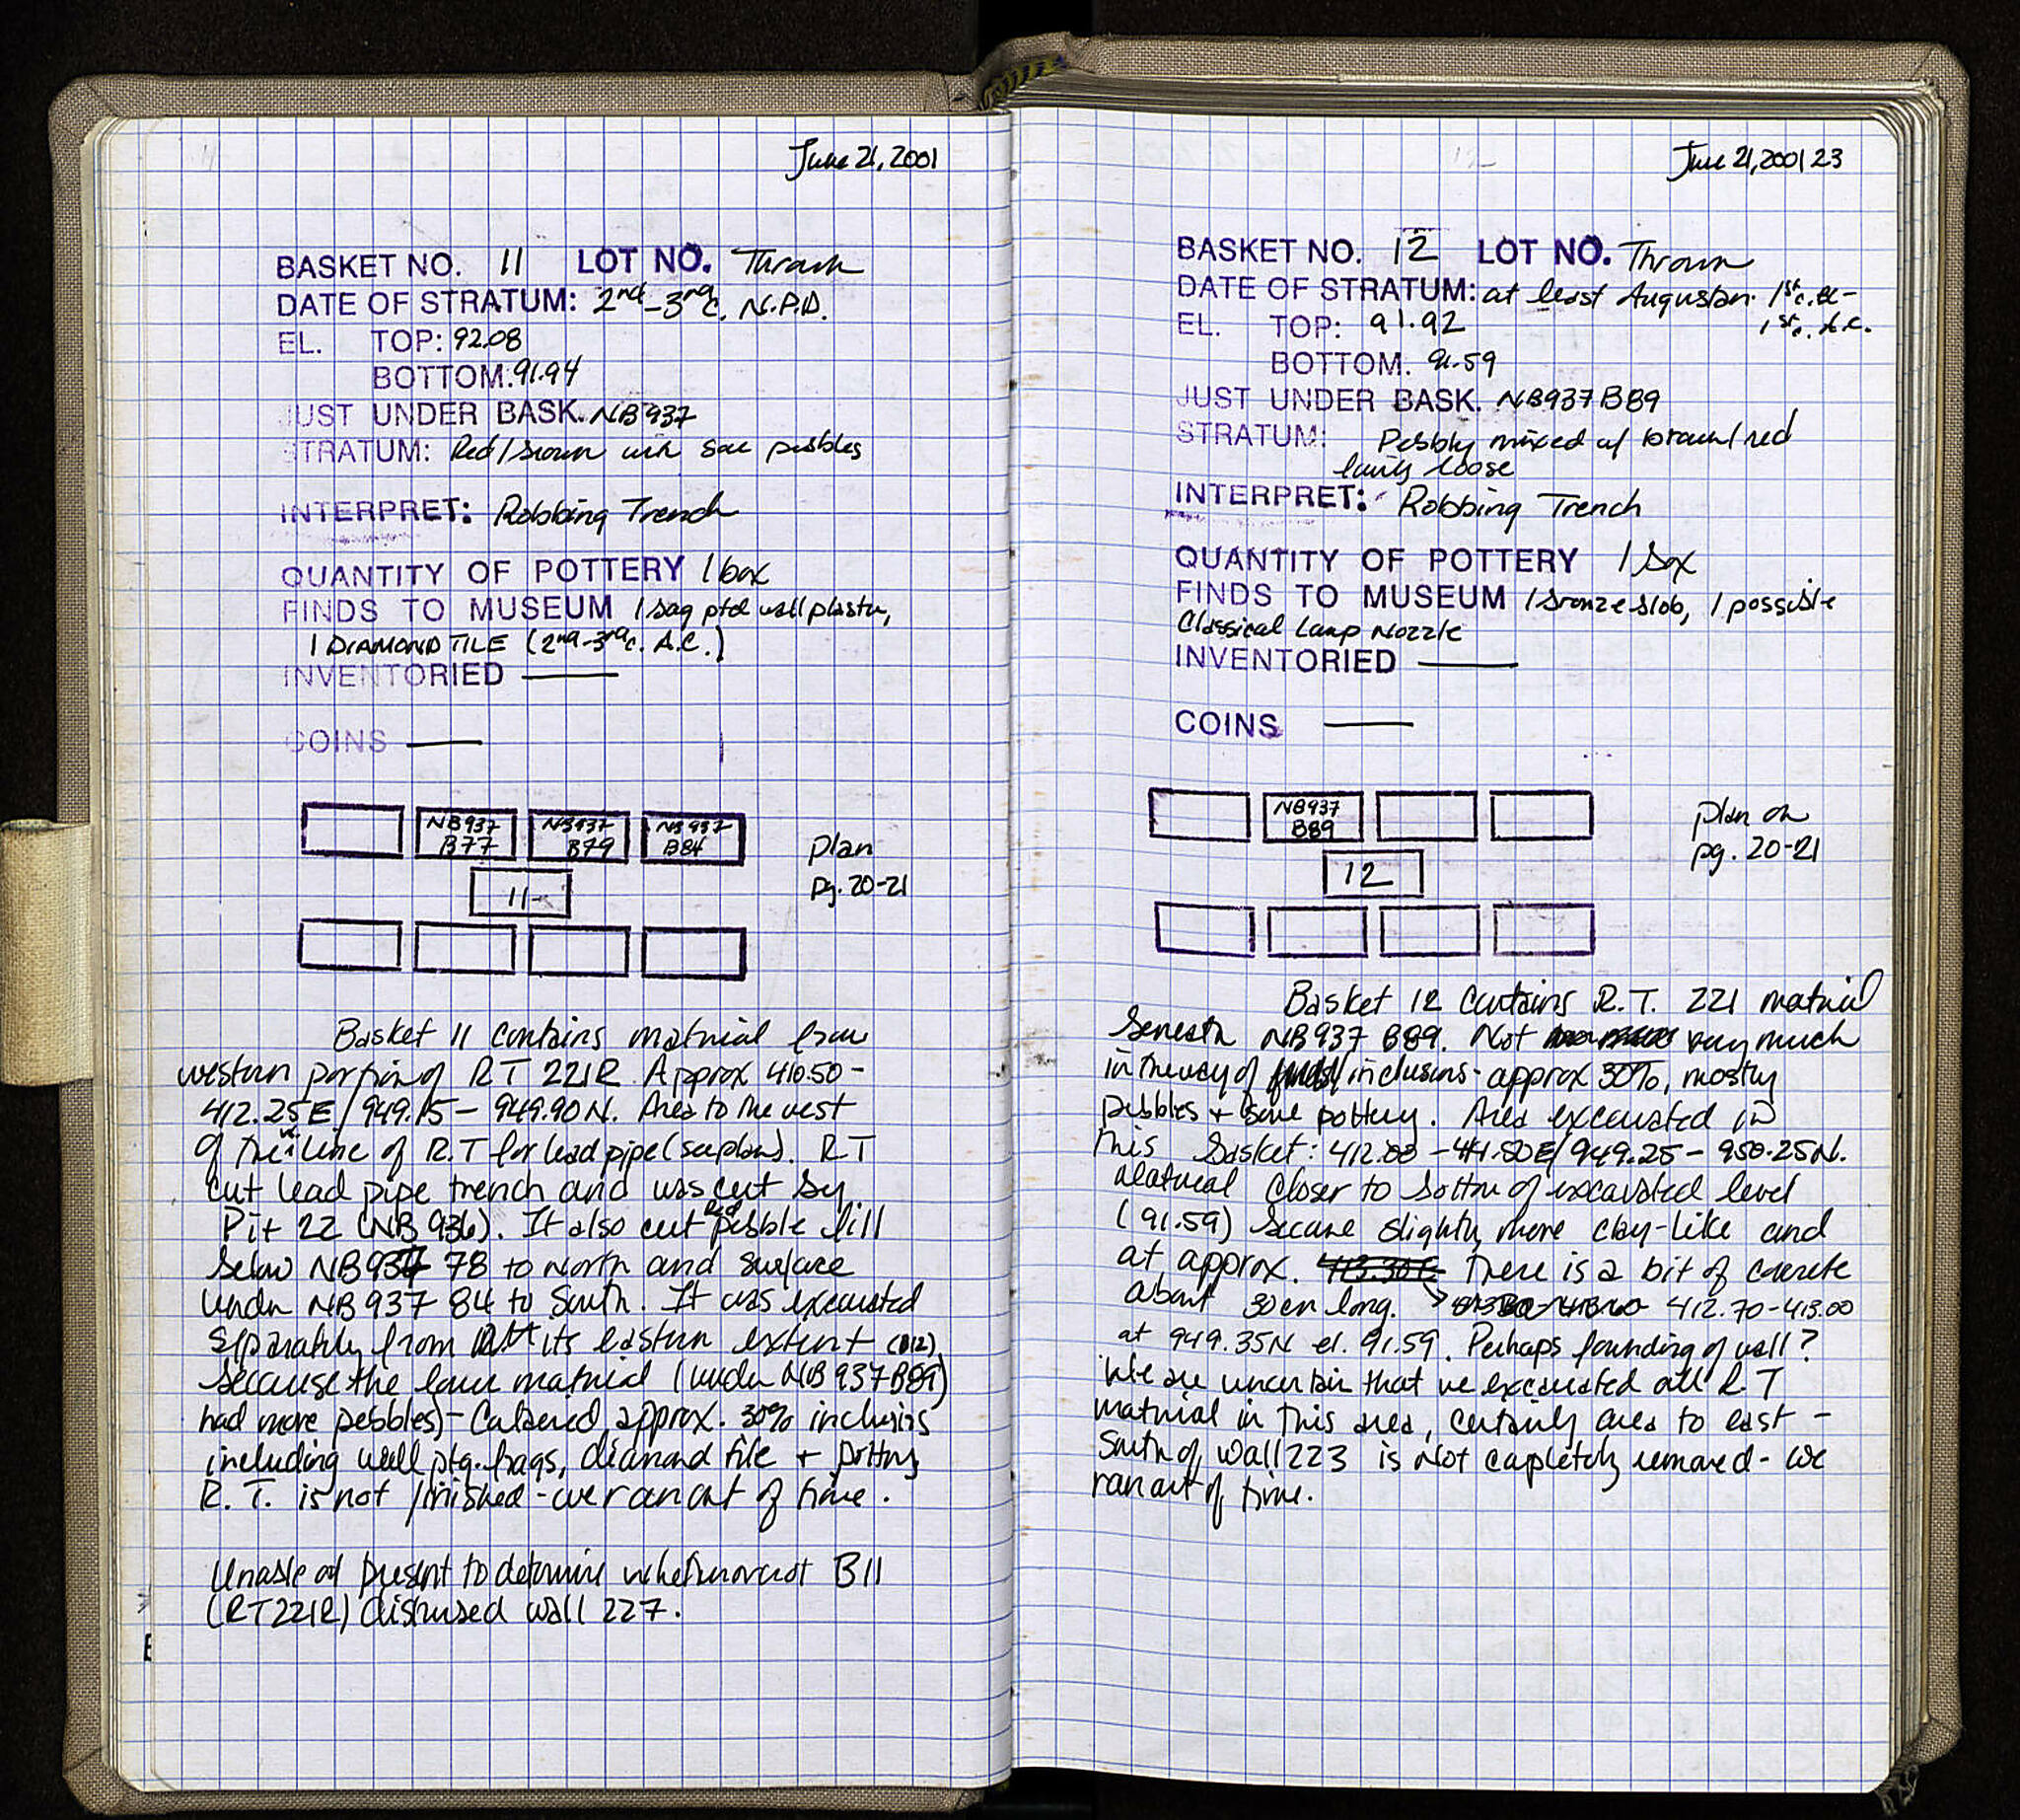 June 21, 2001
BASKET NO. 11 LOT NO. Thrown
DATE OF STRATUM: 2nd-3rd c. N.P.D.
EL. TOP: 92.08
BOTTOM: 91.94
JUST UNDER BASK. NB937
STRATUM: Red/brown with some pebbles
INTERPRET: Robbing Trench
QUANTITY OF POTTERY 1 box
FINDS TO MUSEUM 1 bag ptd wall plaster,
1 DIAMOND TILE (2nd-3rd c. A.C.)
INVENTORIED —
COINS —
NB937 B77
NB937 B79
NB937 B84
11
Plan
pg. 20-21
Basket 11 contains material from
western portion of RT 221R. Approx 410.50-
412.25E/949.15-949.90N. Area to the west
of the line of R.T for lead pipe (see plan). RT
cut lead pipe trench and was cut by
Pit 22 (NB936). It also cut Red pebble fill
below NB937 78 to North and surface
under NB937 84 to South. It was excavated
separately from its eastern extent (B12)
because the lower material (under NB937B89)
had more pebbles)- Contained approx. 30% inclusions
including wall ptg. frags, diamond tile + pottery
R.T. is not finished - we ran out of time.
Unable at present to determine whether or not B11
(RT221R) disturbed wall 227.
June 21, 2001 23
BASKET NO. 12 LOT NO. Thrown
DATE OF STRATUM: at least Augustan 1st c. BC-
1st c. A.C.
EL. TOP: 91.92
BOTTOM. 91.59
JUST UNDER BASK. NB937 B89
STRATUM: Pebbly mixed w/ brown/red
fairly loose
INTERPRET: Robbing Trench
QUANTITY OF POTTERY 1 box
FINDS TO MUSEUM 1 bronze blob, 1 possible
Classical Lamp Nozzle
INVENTORIED —
COINS —
NB937 B89
12
plan on
pg. 20-21
Basket 12 contains R.T. 221 material
beneath NB937 B89. Not very much
in the way of inclusions- approx 30%, mostly
pebbles + some pottery. Area excavated in
this basket: 412.00-411.50E/949.25-950.25N.
Material closer to bottom of excavated level
(91.59) became slightly more clay-like and
at approx. There is a bit of concrete
about 30cm long. 412.70-413.00
at 949.35N el. 91.59. Perhaps founding of wall?
We are uncertain that we excavated all R.T
material in this area, certainly area to east -
South of wall 223 is not completely removed - we
ran out of time.